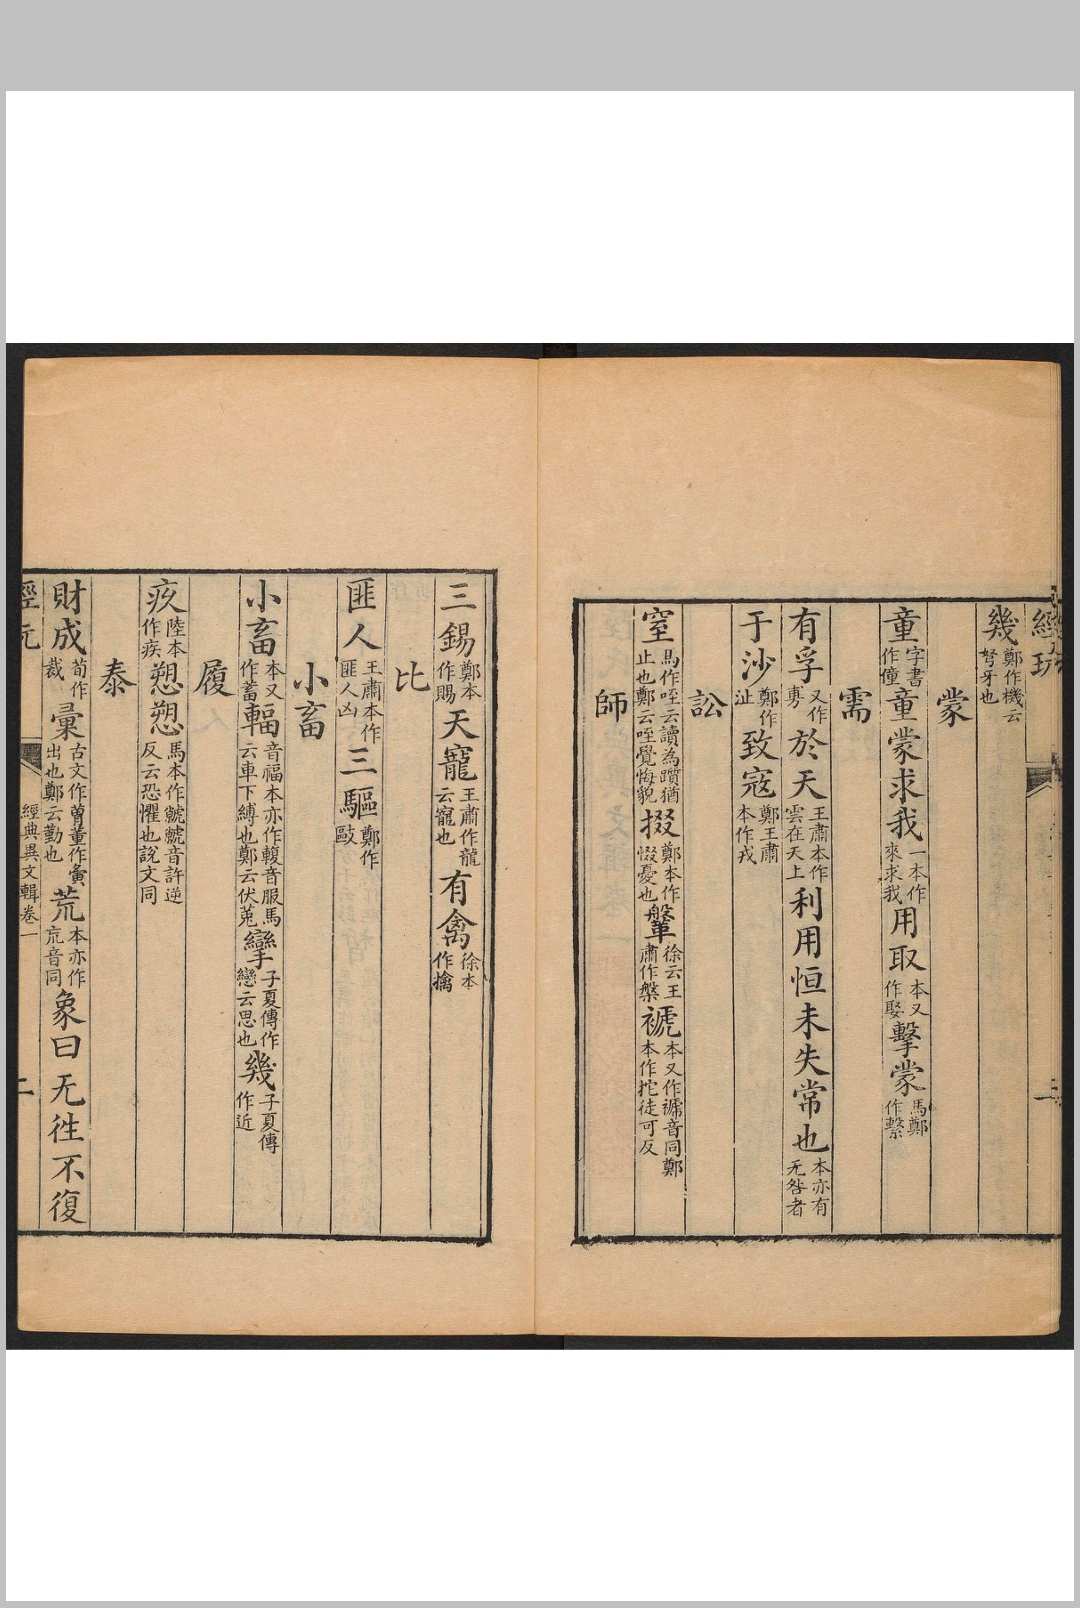 經玩
二
幾鄭作機云弩牙也
蒙
童字書作僮童蒙求我一本作來求我用取本又作娶擊蒙馬鄭作繫
需
有孚又作旉於天王肅本作雲在天上利用恒未失常也本亦有无咎者
于沙鄭作沚致寇鄭王肅本作戎
訟
窒馬作咥云讀為躓猶止也鄭云咥覺悔貌掇鄭本作惙憂也鞶徐云王肅作槃褫本又作褫音同鄭本作拕徒可反
師
三錫鄭本作賜天寵王肅作龍云寵也有禽徐本作擒
比
匪人王肅本作匪人凶三驅鄭作敺
小畜
小畜本又作蓄輻音福本亦作輹音服馬云車下縛也鄭云伏菟攣子夏傳作戀云思也幾子夏傳作近
履
疚陸本作疾愬愬馬本作虩虩音許逆反云恐懼也說文同
泰
財成荀作裁彙古文作曹董作夤出也鄭云勤也荒本亦作巟音同象曰无往不復
經元
經典異文輯卷一
二